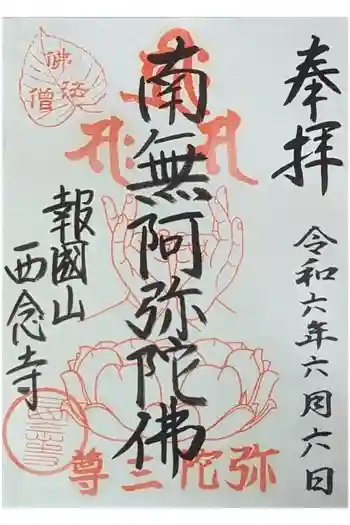 奉拝
令和六年六月六日
南無阿弥陀佛
報國山
西念寺
佛法僧
弥陀三尊